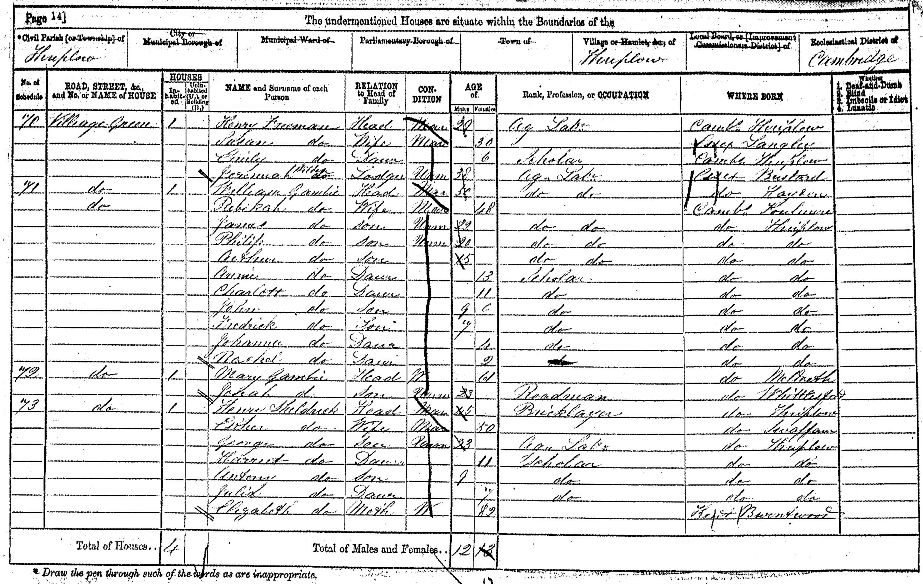 Page 14]
The undermentioned Houses are situate within the Boundaries of the
*Civil Parish [or Township] of City or Municipal Borough of Municipal Ward of Parliamentary Borough of Town of Village or Hamlet, &c., of Local Board, or [Improvement Commissioners District] of Ecclesiastical District of
Thriplow Thriplow Cambridge
No. of Schedule ROAD, STREET, &c., and No. or NAME of HOUSE HOUSES In-habited NAME and Surname of each Person RELATION to Head of Family CON-DITION AGE of Males Females Rank, Profession, or OCCUPATION WHERE BORN Whether 1. Deaf-and-Dumb 2. Blind 3. Imbecile or Idiot 4. Lunatic
70 Village Green 1 Henry Freeman Head Mar Ag Lab Cambs Thriplow
Susan do Wife Mar 30 Essex Langley
Emily do Daur 6 Scholar Cambs Thriplow
Jeremiah Lodger Unm 38 Ag Lab Essex
71 do 1 William Gambie Head Mar 50 do do do Haydon
do Rebekah do Wife Mar 48 Cambs
James do son Unm 22 do do do Thriplow
Philip do son Unm 20 do do do do
Arthur do son 15 do do do do
Annie do Daur 13 Scholar do do
Charlott do Daur 11 do do do
John do son 9 do do do
Fredrick do Son 7 do do do
Johanna do Daur 4 do do do
Rachel do Daur 2 do do
72 do 1 Mary Gambie Head W 61 do Melbreth
do son Unm 23 Roadman do Whittlesford
73 do 1 Henry Sheldrick Head Mar 45 Bricklayer do Thriplow
Esther do Wife Mar 50 do Swaffam
George do Son Unm 23 Ag Lab do Thriplow
Harriet do Daur 11 Scholar do do
Antony do son 9 do do do
Julia do Daur 7 do do do
Elizabeth do Moth W 82 Brentwood
Total of Houses.. 4 Total of Males and Females.. 12 12
* Draw the pen through such of the words as are inappropriate.